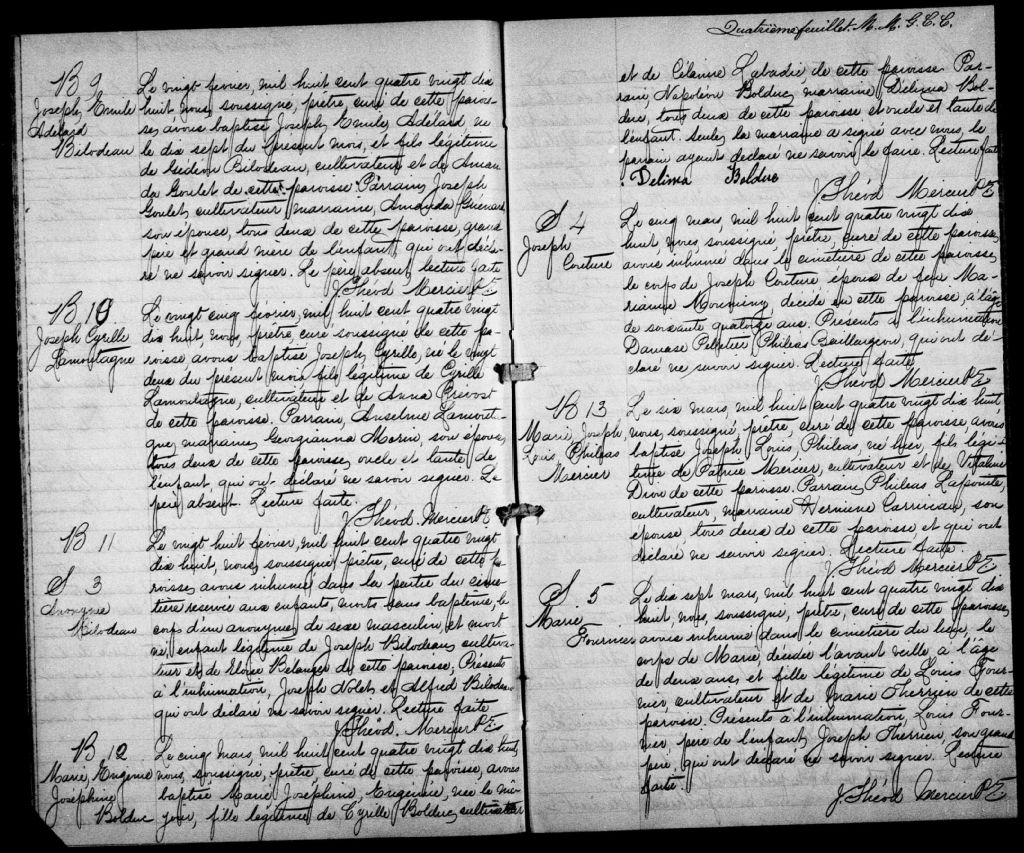 B 9
Joseph, Emile
Adélard
Bilodeau
Le vingt février, mil huit cent quatre vingt dix
huit, nous, soussigné, prêtre, curé de cette parois-
se, avons baptisé Joseph, Emile, Adélard né
le dix sept du présent mois, et fils légitime
de Bilodeau, cultivateur, et de Aman-
da Goulet de cette paroisse. Parrain, Joseph
Goulet, cultivateur, marraine, Amanda
son épouse, tous deux de cette paroisse, grand
père et grand mère de l'enfant, qui ont décla-
ré ne savoir signer. Le père absent, lecture faite
J Théod. Mercier Ptre
B 10
Joseph Cyrille
Lamontagne
Le vingt cinq février, mil huit cent quatre vingt
dix huit, nous, prêtre curé soussigné de cette pa-
roisse avons baptisé Joseph, Cyrille, né le vingt
deux du présent mois, fils légitime de Cyrille
Lamontagne, cultivateur et de Anna Prévost
de cette paroisse. Parrain, Anselme Lamonta-
gne, marraine, Georgianna Morin, son épouse,
tous deux de cette paroisse, oncle et tante de
l'enfant qui ont déclaré ne savoir signer. Le
père absent. Lecture faite.
J Théod. Mercier Ptre
B 11
S 3
Anonyme
Bilodeau
Le vingt huit février, mil huit cent quatre vingt
dix huit, nous, soussigné, prêtre, curé de cette pa-
roisse avons inhumé dans la partie du cime-
tière réservée aux enfants, morts sans baptême, le
corps d'un anonyme de sexe masculin et mort
né, enfant légitime de Joseph Bilodeau, cultiva-
teur et de Belanger de cette paroisse. Présents
à l'inhumation, Joseph Nolet et Alfred Bilodeau
qui ont déclaré ne savoir signer. Lecture faite
J Théod. Mercier Ptre
B 12
Marie, Eugenie
Joséphine
Bolduc
Le cinq mars, mil huit cent quatre vingt dix huit
nous, soussigné, prêtre, curé de cette paroisse, avons
baptisé Marie, Joséphine, Eugénie, née le mê-
jour, fille légitime de Cyrille Bolduc, cultivateur
Quatrième feuillet. M. M. G. C. C.
et de Célanire Labadie de cette paroisse. Par-
rain, Napoléon Bolduc, marraine Delima Bol-
duc, tous deux de cette paroisse et oncle et tante de
l'enfant. Seule, la marraine a signé avec nous, le
parrain ayant déclaré ne savoir le faire. Lecture faite
Delima Bolduc
J Théod. Mercier Ptre
S 4
Joseph
Couture
Le cinq mars, mil huit cent quatre vingt dix
huit nous, soussigné, prêtre, curé de cette paroisse,
avons inhumé dans le cimetière de cette paroisse,
le corps de Joseph Couture, époux de feu Ma-
rianne décédé en cette paroisse, à l'âge
de soixante quatorze ans. Présents à l'inhumation
Damase Pelletier, Philéas Baillargeon, qui ont dé-
claré ne savoir signer. Lecture faite
J Théod. Mercier Ptre
B 13
Marie, Joseph,
Louis, Philéas
Mercier
Le six mars, mil huit cent quatre vingt dix huit
nous, soussigné, prêtre, curé de cette paroisse avons
baptisé Joseph, Louis, Philéas, né hier, fils légi-
time de Patrice Mercier, cultivateur et de Vitaline
Drouin de cette paroisse. Parrain, Philéas Lapointe,
cultivateur, marraine son
épouse, tous deux de cette paroisse, et qui ont
déclaré ne savoir signer. Lecture faite.
J Théod. Mercier Ptre
S. 5
Marie
Fournier
Le dix sept mars, mil huit cent quatre vingt dix
huit, nous, soussigné, prêtre, curé de cette paroisse,
avons inhumé dans le cimetière du lieu, le
corps de Marie, décédée l'avant veille à l'âge
de deux ans, et fille légitime de Louis Four-
nier, cultivateur et de Marie Therrien de cette
paroisse. Présents à l'inhumation, Louis Four-
nier, père de l'enfant, Joseph Therrien, son grand
père, qui ont déclaré ne savoir signer. Lecture
faite.
J Théod Mercier Ptre